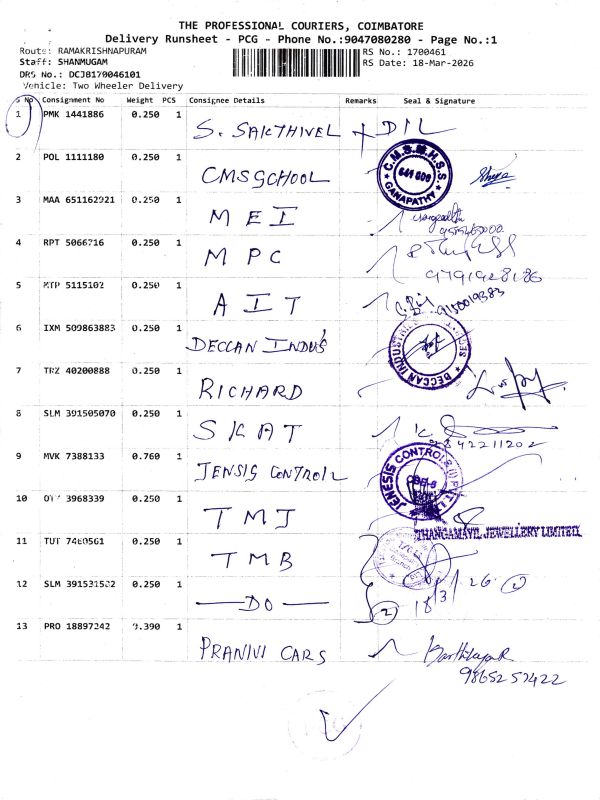 THE PROFESSIONAL COURIERS, COIMBATORE
Delivery Runsheet - PCG - Phone No.:9047080280 - Page No.:1
Route: RAMAKRISHNAPURAM
RS No.: 1700461
Staff: SHANMUGAM
RS Date: 18-Mar-2026
DRS No.: DCJB179046101
Vehicle: Two Wheeler Delivery
S No. Consignment No Weight PCS Consignee Details Remarks Seal & Signature
1 PMK 1441886 0.250 1 S. SAKTHIVEL + DIL
2 POL 1111180 0.250 1 CMS SCHOOL
C.M.S.M.H.S.S
641 006
GANAPATHY
3 MAA 651162921 0.250 1 MEI
4 RPT 5066716 0.250 1 MPC
9791928186
5 MTP 5115102 0.250 1 AIT
9150019383
6 IXM 509863883 0.250 1 DECCAN INDUS
DECCAN INDUSTRIES
7 TRZ 40200888 0.250 1 RICHARD
8 SLM 391505070 0.250 1 SKAT
9842211202
9 MVK 7388133 0.760 1 JENSIS CONTROLL
JENESIS CONTROLS (I) PVT. LTD.
10 3968339 0.250 1 TMJ
THANGAMAYIL JEWELLERY LIMITED.
11 TUT 7460561 0.250 1 TMB
12 SLM 391531502 0.250 1 —DO—
2
18/3/26
13 PRO 18897242 0.390 1 PRANIVI CARS
Karthikeyan R
9865257422